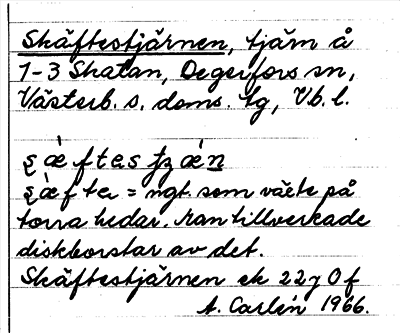 Skäftestjärnen, tjärn å
1-3 Skatan, Degerfors sn,
Västerb. s. doms. tg, Vb. l.
ʂæ̀ftesʈʂǽn
ʂæ̀fter = ngt. som växte på
torra hedar. Man tillverkade
diskborstar av det.
Skäftestjärnen ek 22 j 0 f
A. Carlén 1966.